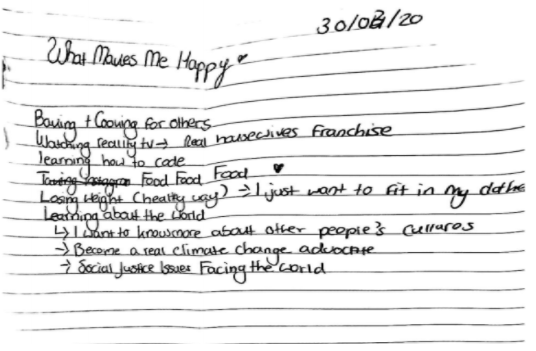 30/08/20
What Makes Me Happy ♥
Baking + Cooking for others
Watching reality tv → Real housewives Franchise
learning how to code
Food Food Food ♥
Losing Weight (healthy way) → I just want to fit in my clothes
Learning about the World
↳ I want to know more about other people's cultures
→ Become a real climate change advocate
→ Social Justice Issues Facing the world